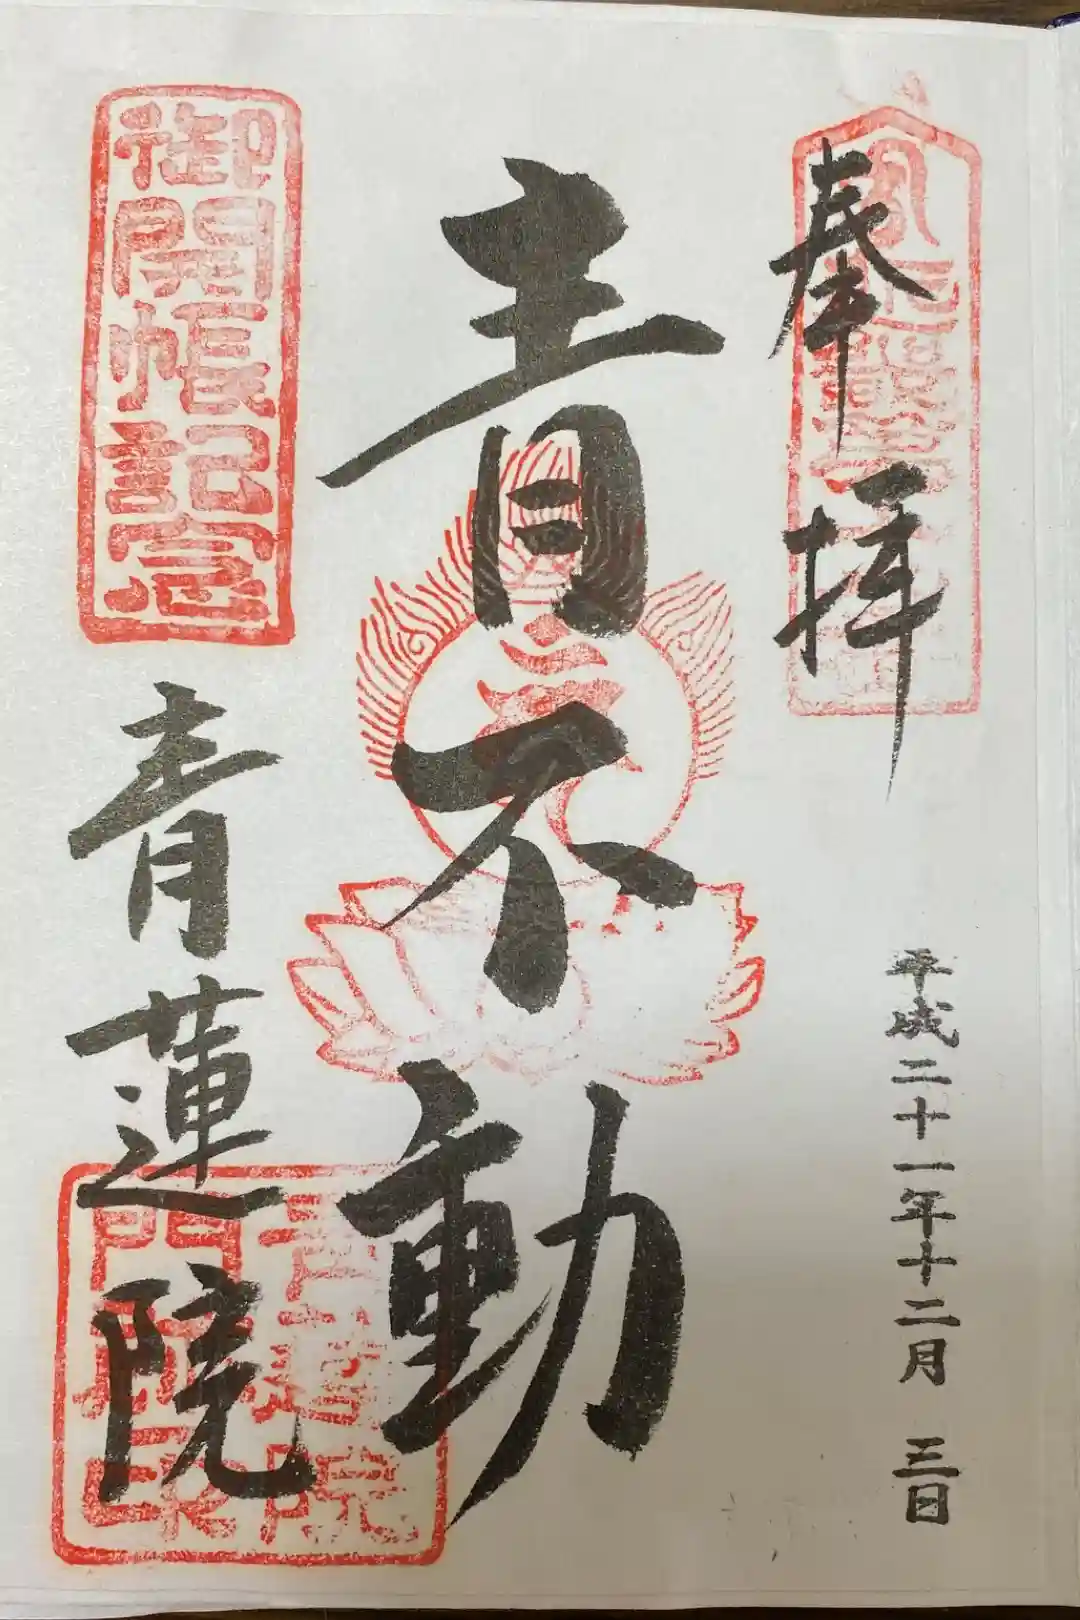 奉拝
平成二十一年十二月 三日
青不動
御開帳記念
青蓮院
青蓮院
門跡印